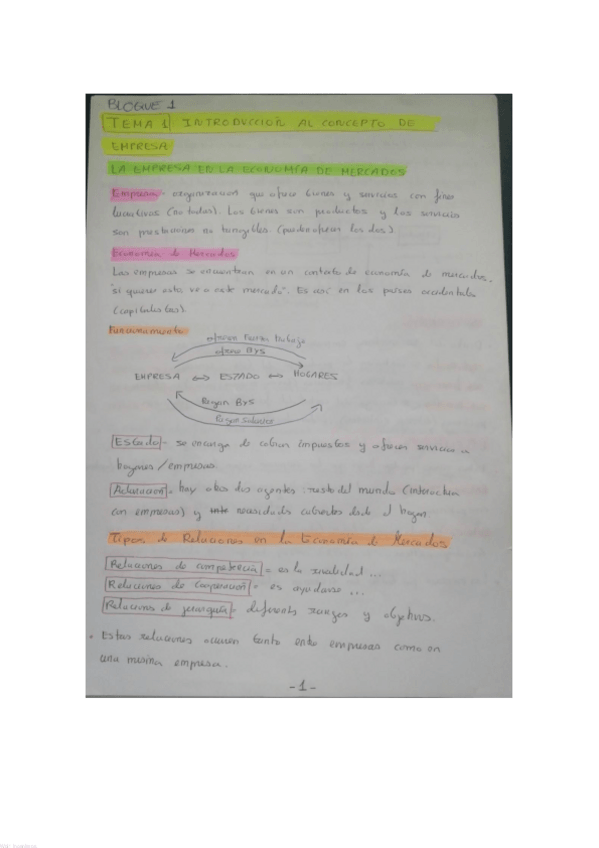 BLOQUE 1
TEMA 1 INTRODUCCIÓN AL CONCEPTO DE
EMPRESA
LA EMPRESA EN LA ECONOMÍA DE MERCADOS
Empresa - organización que ofrece bienes y servicios con fines
lucrativos (no todas). Los bienes son productos y los servicios
son prestaciones no tangibles. (pueden ofrecer los dos)
Economía de Mercados
Las empresas se encuentran en un contexto de economía de mercados,
"si quieres esto ve a este mercado". Es así en los países occidentales
(capitalistas).
Funcionamiento
ofrecen fuerza trabajo
ofrece BYS
EMPRESA ↔ ESTADO ↔ HOGARES
Pagan BYS
Pagan salarios
Estado - se encarga de cobrar impuestos y ofrecer servicios a
hogares/empresas.
Aclaración - hay otros dos agentes: resto del mundo (interactúa
con empresas) y necesidades cubiertas desde el hogar.
Tipos de Relaciones en la Economía de Mercados
Relaciones de competencia = es la rivalidad ...
Relaciones de Cooperación = es ayudarse ...
Relaciones de jerarquía = diferentes rangos y objetivos.
• Estas relaciones ocurren tanto entre empresas como en
una misma empresa.
- 1 -